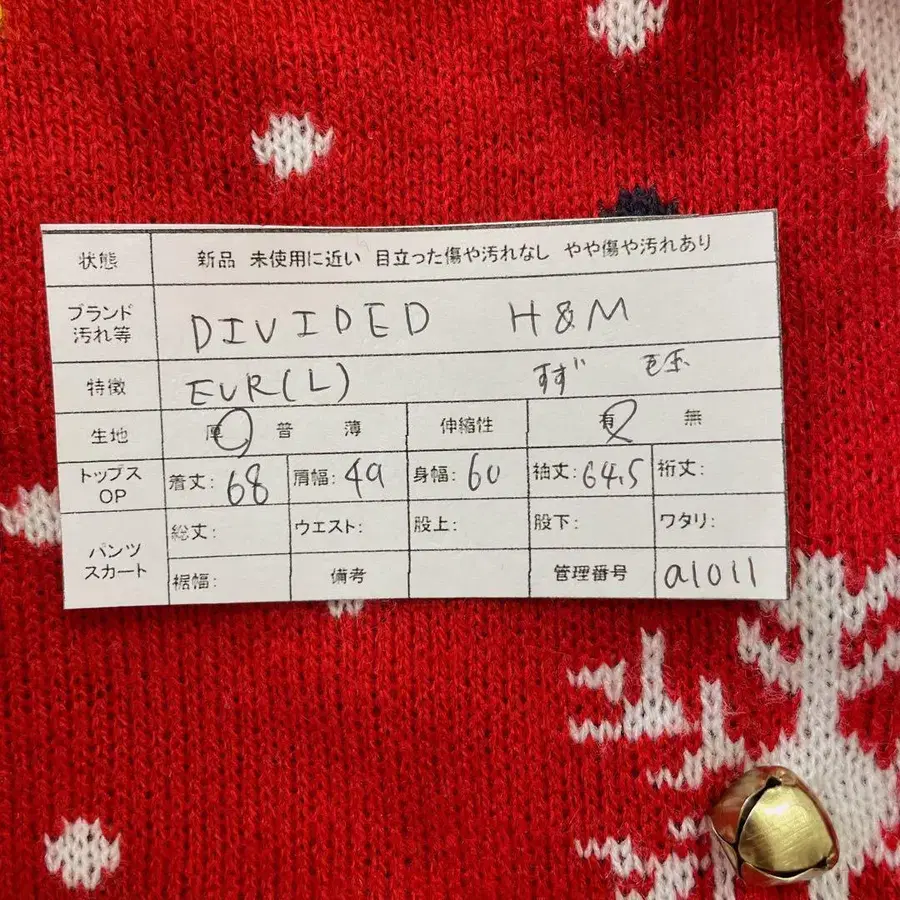 状態 新品 未使用に近い 目立った傷や汚れなし やや傷や汚れあり
ブランド 汚れ等 DIVIDED H&M
特徴 EUR(L) すず 毛玉
生地 厚 普 薄 伸縮性 有 無
トップス OP 着丈: 68 肩幅: 49 身幅: 60 袖丈: 64.5 裄丈:
パンツ スカート 総丈: ウエスト: 股上: 股下: ワタリ:
裾幅: 備考 管理番号 a1011